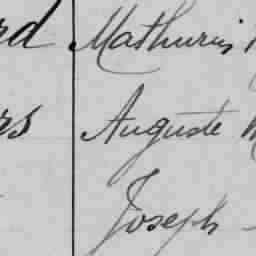 rd Mathurin
rs Auguste
Joseph